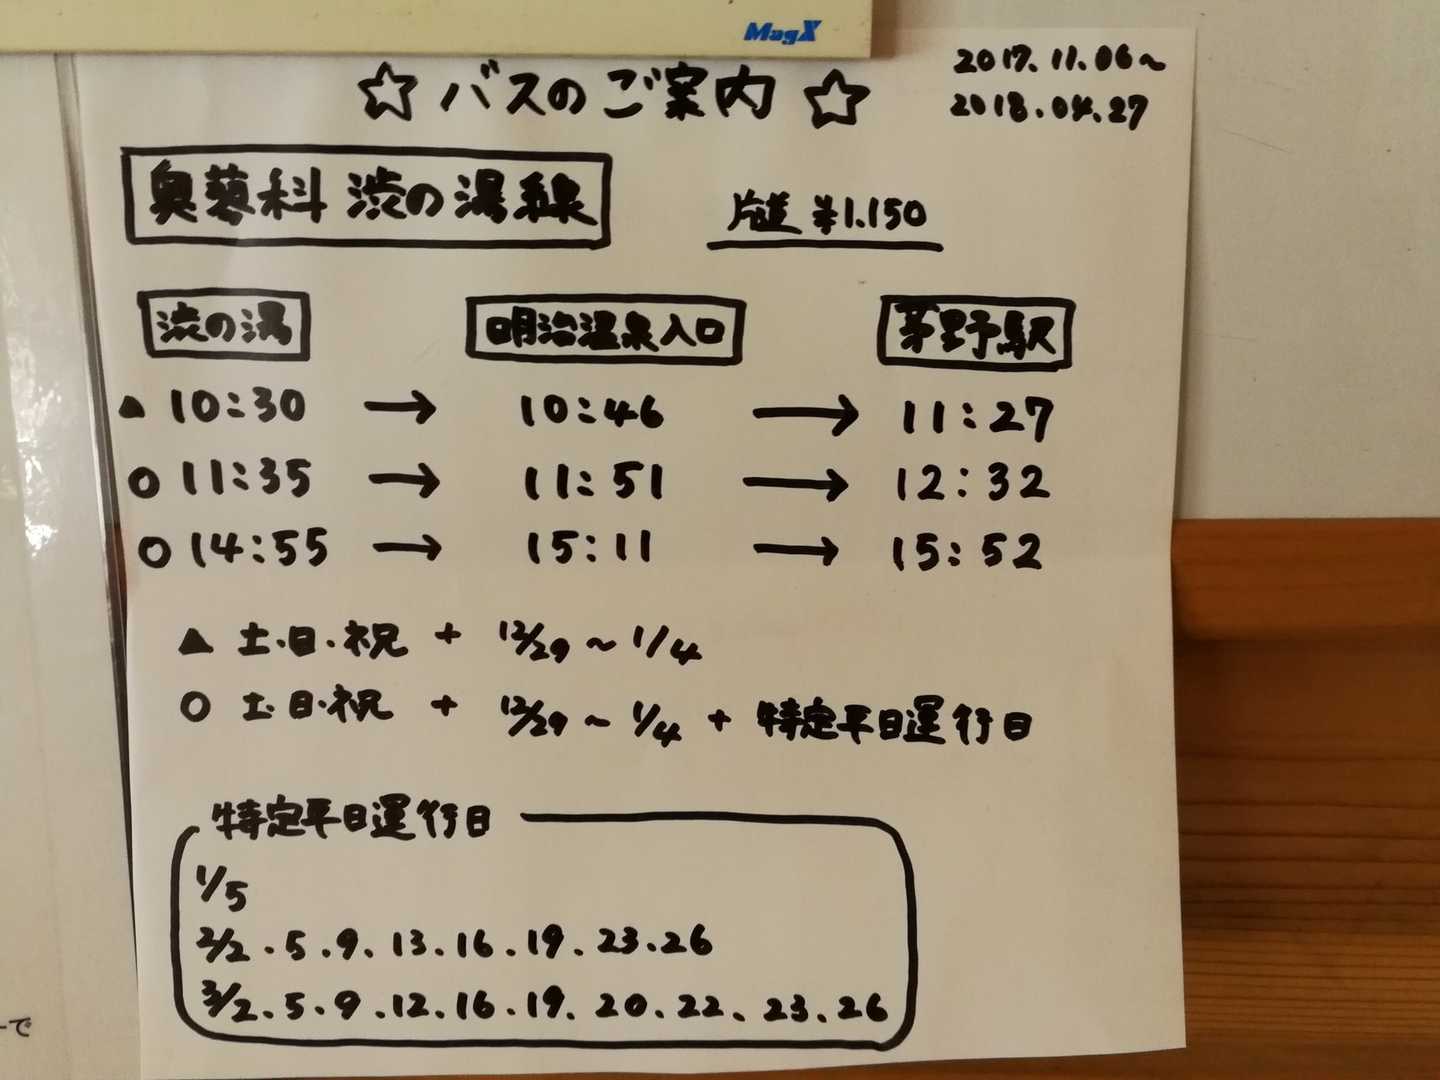 MagX
☆ バスのご案内 ☆
2017.11.06～
2018.04.27
奥蓼科 渋の湯線
片道 ¥1.150
渋の湯 明治温泉入口 茅野駅
▲ 10:30 → 10:46 → 11:27
○ 11:35 → 11:51 → 12:32
○ 14:55 → 15:11 → 15:52
▲ 土・日・祝 + 12/29 ～ 1/4
○ 土・日・祝 + 12/29 ～ 1/4 + 特定平日運行日
特定平日運行日
1/5
2/2 . 5 . 9 . 13 . 16 . 19 . 23 . 26
3/2 . 5 . 9 . 12 . 16 . 19 . 20 . 22 . 23 . 26
ーで